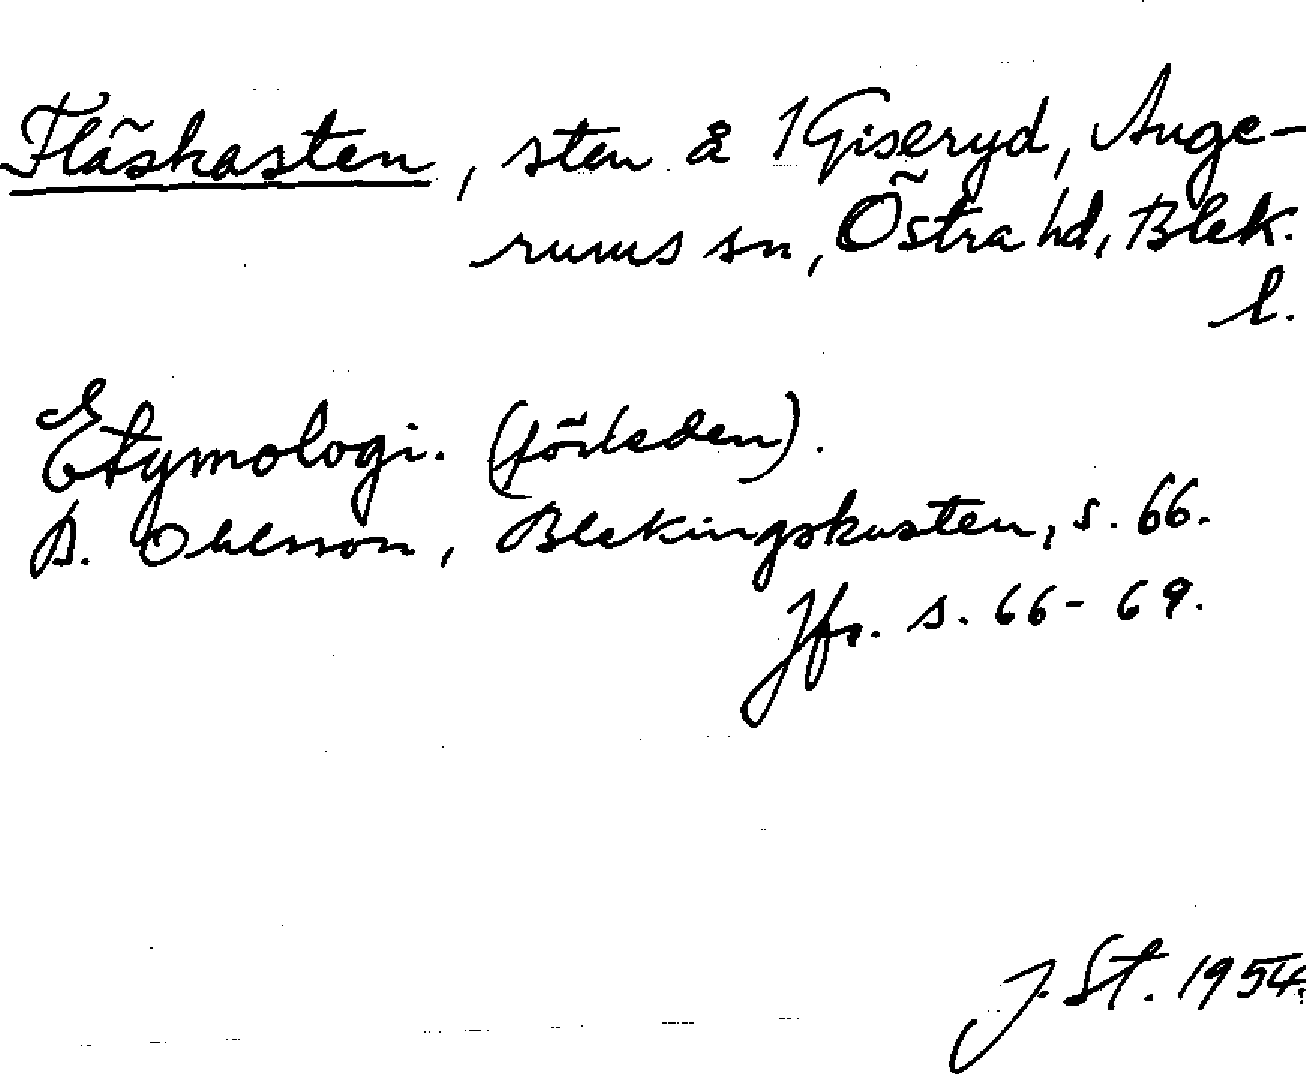 Fläskasten, sten å 1 Giseryd, Auge-
rums sn, Östra hd, Blek.
l.
Etymologi. (förleden).
B. Ohlsson, Blekingskusten, s. 66.
Jfr. s. 66-69.
J. St. 1954.